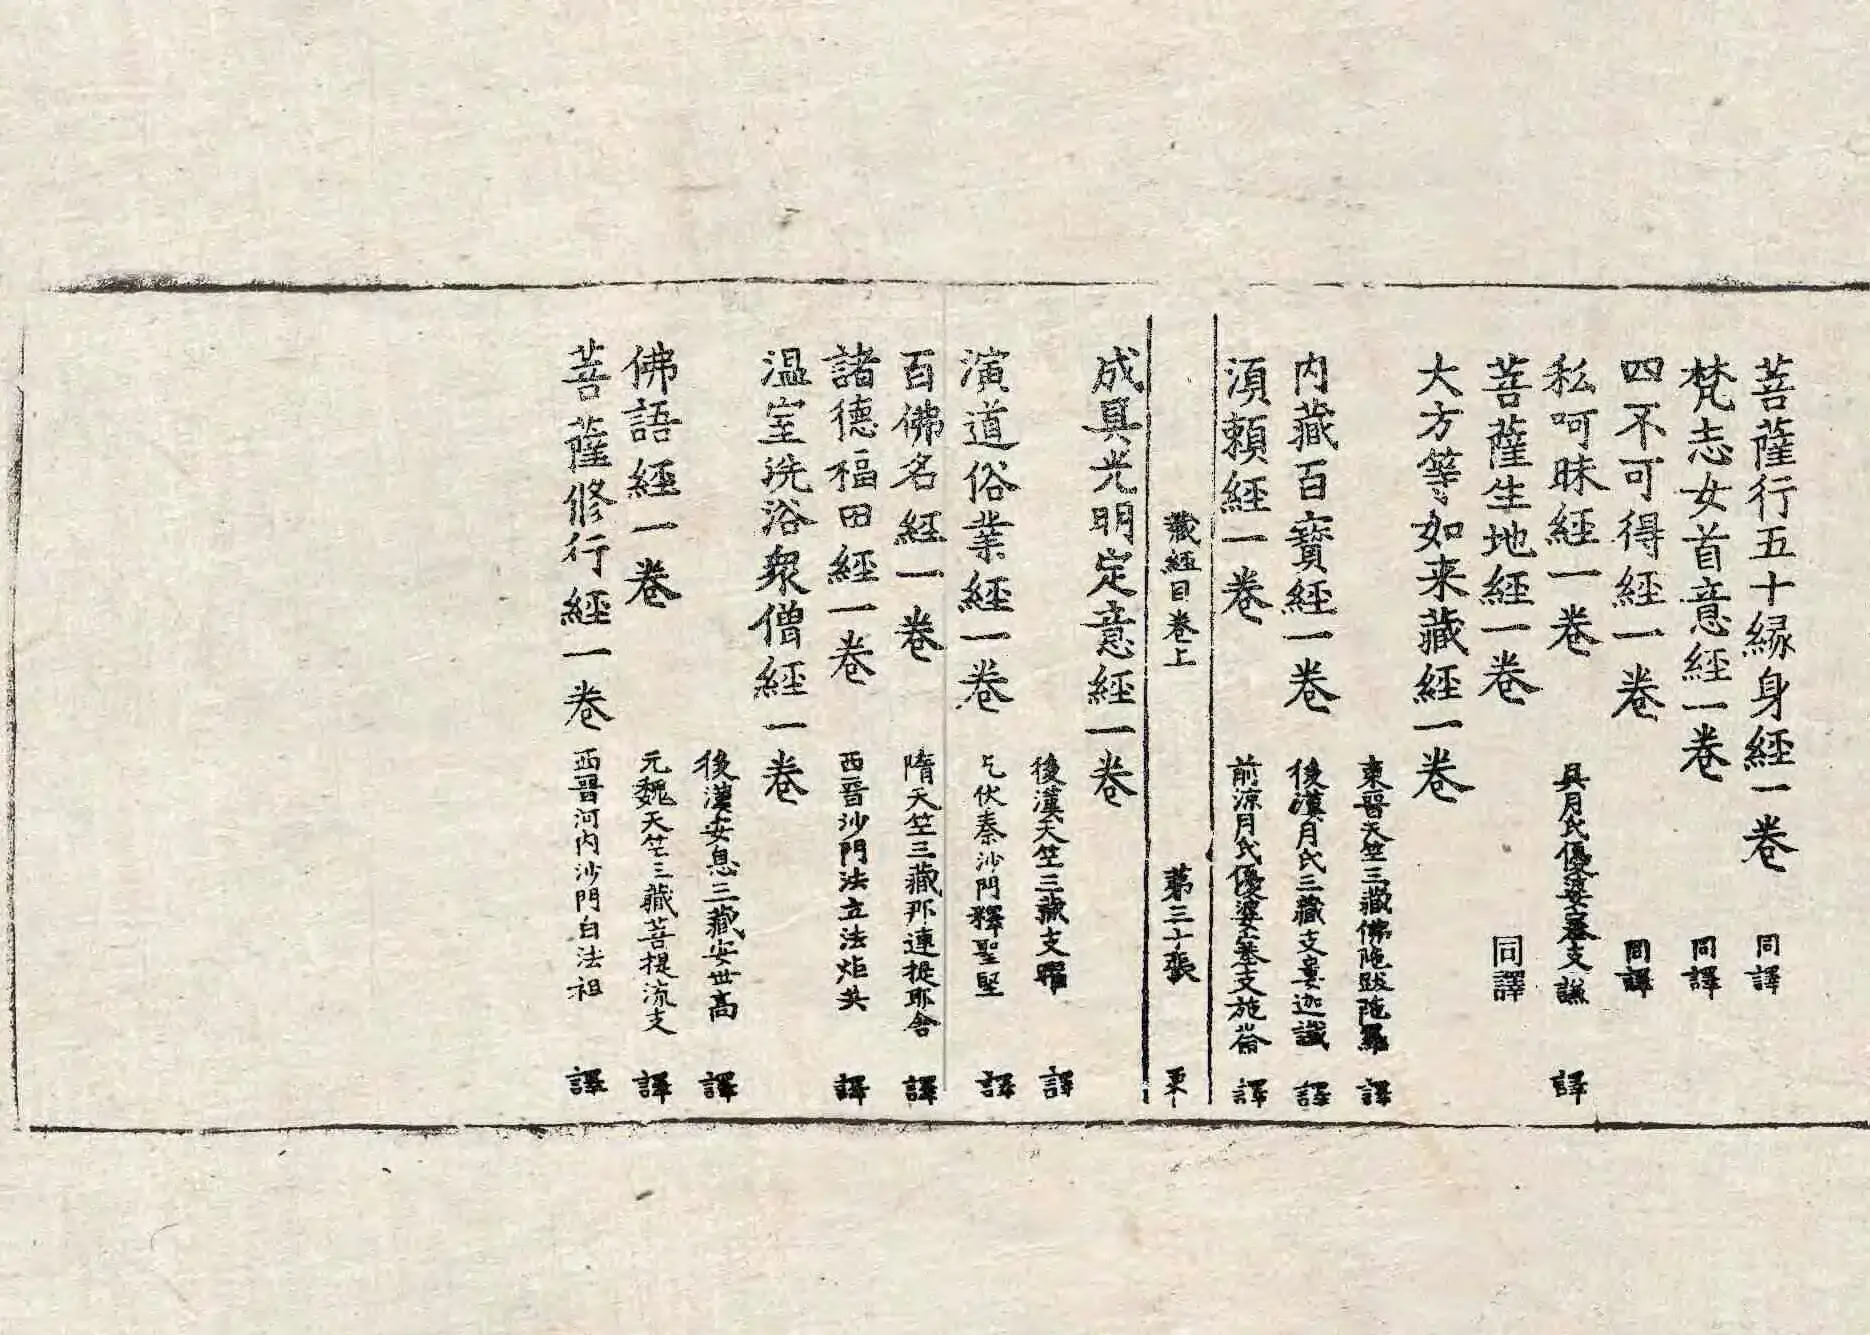 菩薩行五十緣身經一卷 同譯
梵志女首意經一卷 同譯
四不可得經一卷 同譯
私呵昧經一卷 吳月氏優婆塞支謙 譯
菩薩生地經一卷 同譯
大方等如来藏經一卷
東晉天竺三藏佛陁跋陁羅 譯
内藏百寶經一卷 後漢月氏三藏支婁迦讖 譯
湏賴經一卷 前涼月氏優婆塞支施崙 譯
藏經目卷上 第三十張 更
成具光明定意經一卷
後漢天竺三藏支曜 譯
演道俗業經一卷 乞伏秦沙門釋聖堅 譯
百佛名經一卷 隋天竺三藏那連提耶舍 譯
諸德福田經一卷 西晉沙門法立法炬共 譯
温室洗浴衆僧經一卷
後漢安息三藏安世高 譯
佛語經一卷 元魏天竺三藏菩提流支 譯
菩薩修行經一卷 西晉河内沙門白法祖 譯